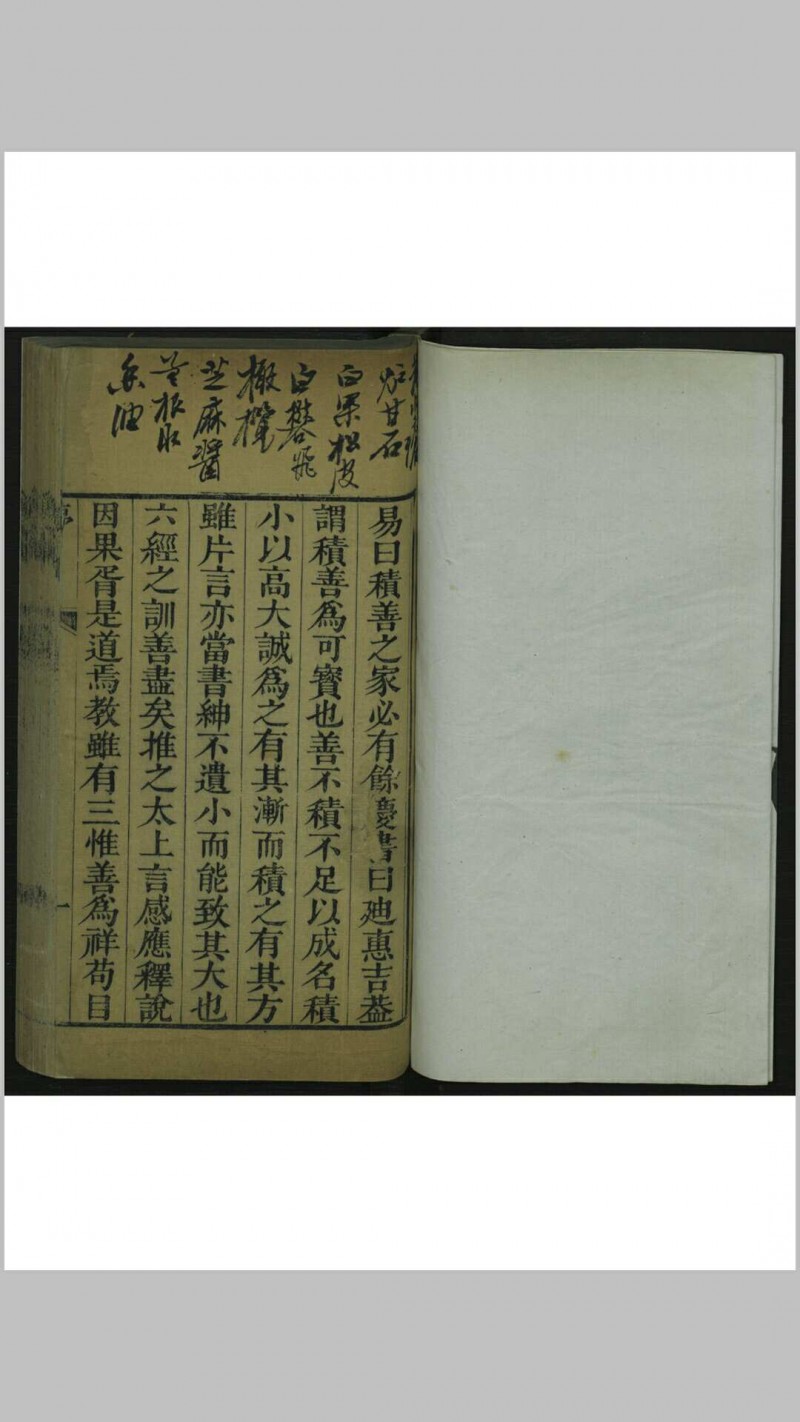 炉甘石
白果松皮
白礬
橄欖
芝麻醬
香油
易曰積善之家必有餘慶書曰廸惠吉葢
謂積善爲可寳也善不積不足以成名積
小以高大誠爲之有其漸而積之有其方
雖片言亦當書紳不遺小而能致其大也
六經之訓善盡矣推之太上言感應釋說
因果胥是道焉教雖有三惟善爲祥苟目
一